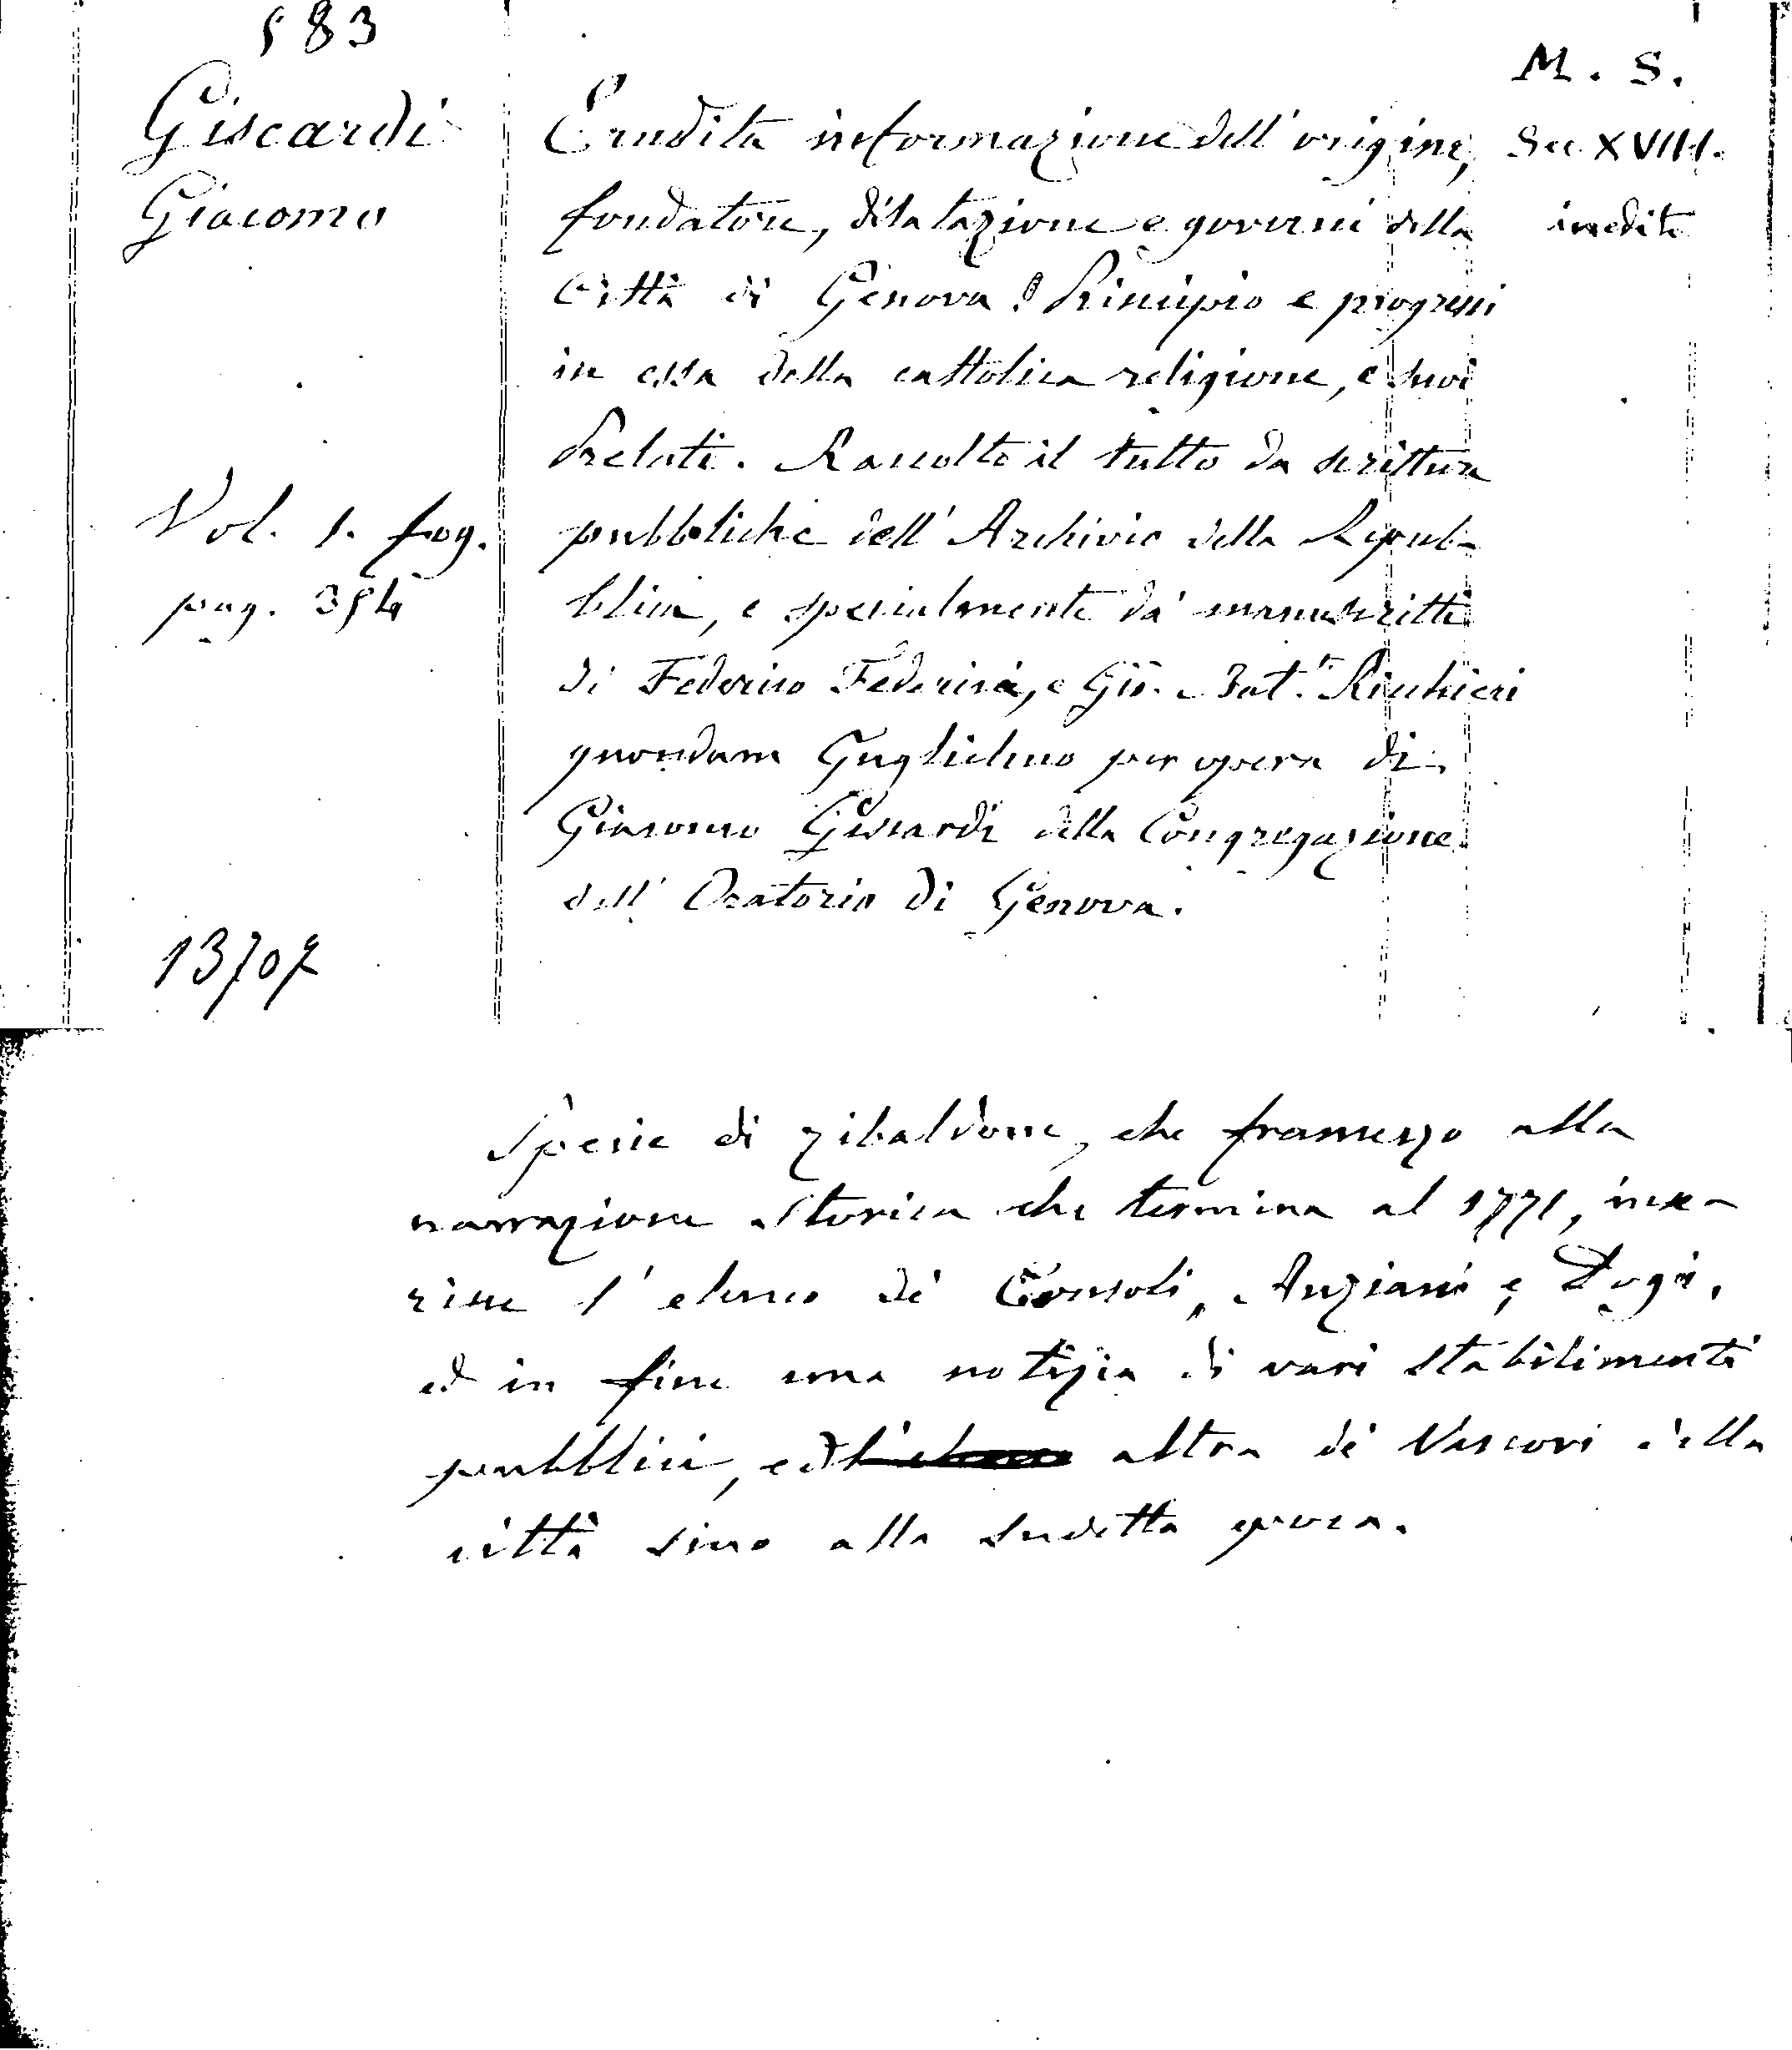 583
M. S.
Giscardi
Giacomo
Erudita informazione dell' origine,
Sec XVIII.
fondatore, dilatazione e governi della
inedito
Città di Genova. Principio e progressi
in essa della cattolica religione, e suoi
Prelati. Raccolto il tutto da scritture
Vol. 1. fog.
pubbliche dell' Archivio della Repub-
pag. 354
blica, e specialmente da' manuscritti
di Federico Federici, e Gio. Bat.ta Richieri
quondam Guglielmo per opera di
Giacomo Giscardi della Congregazione
dell' Oratorio di Genova.
13707
Specie di zibaldone, che framezzo alla
narrazione storica che termina al 1771, inse-
risce l' elenco de' Consoli, Anziani e Dogi,
ed in fine una notizia di vari stabilimenti
pubblici, ed altra de' Vescovi della
città sino alla sudetta epoca.